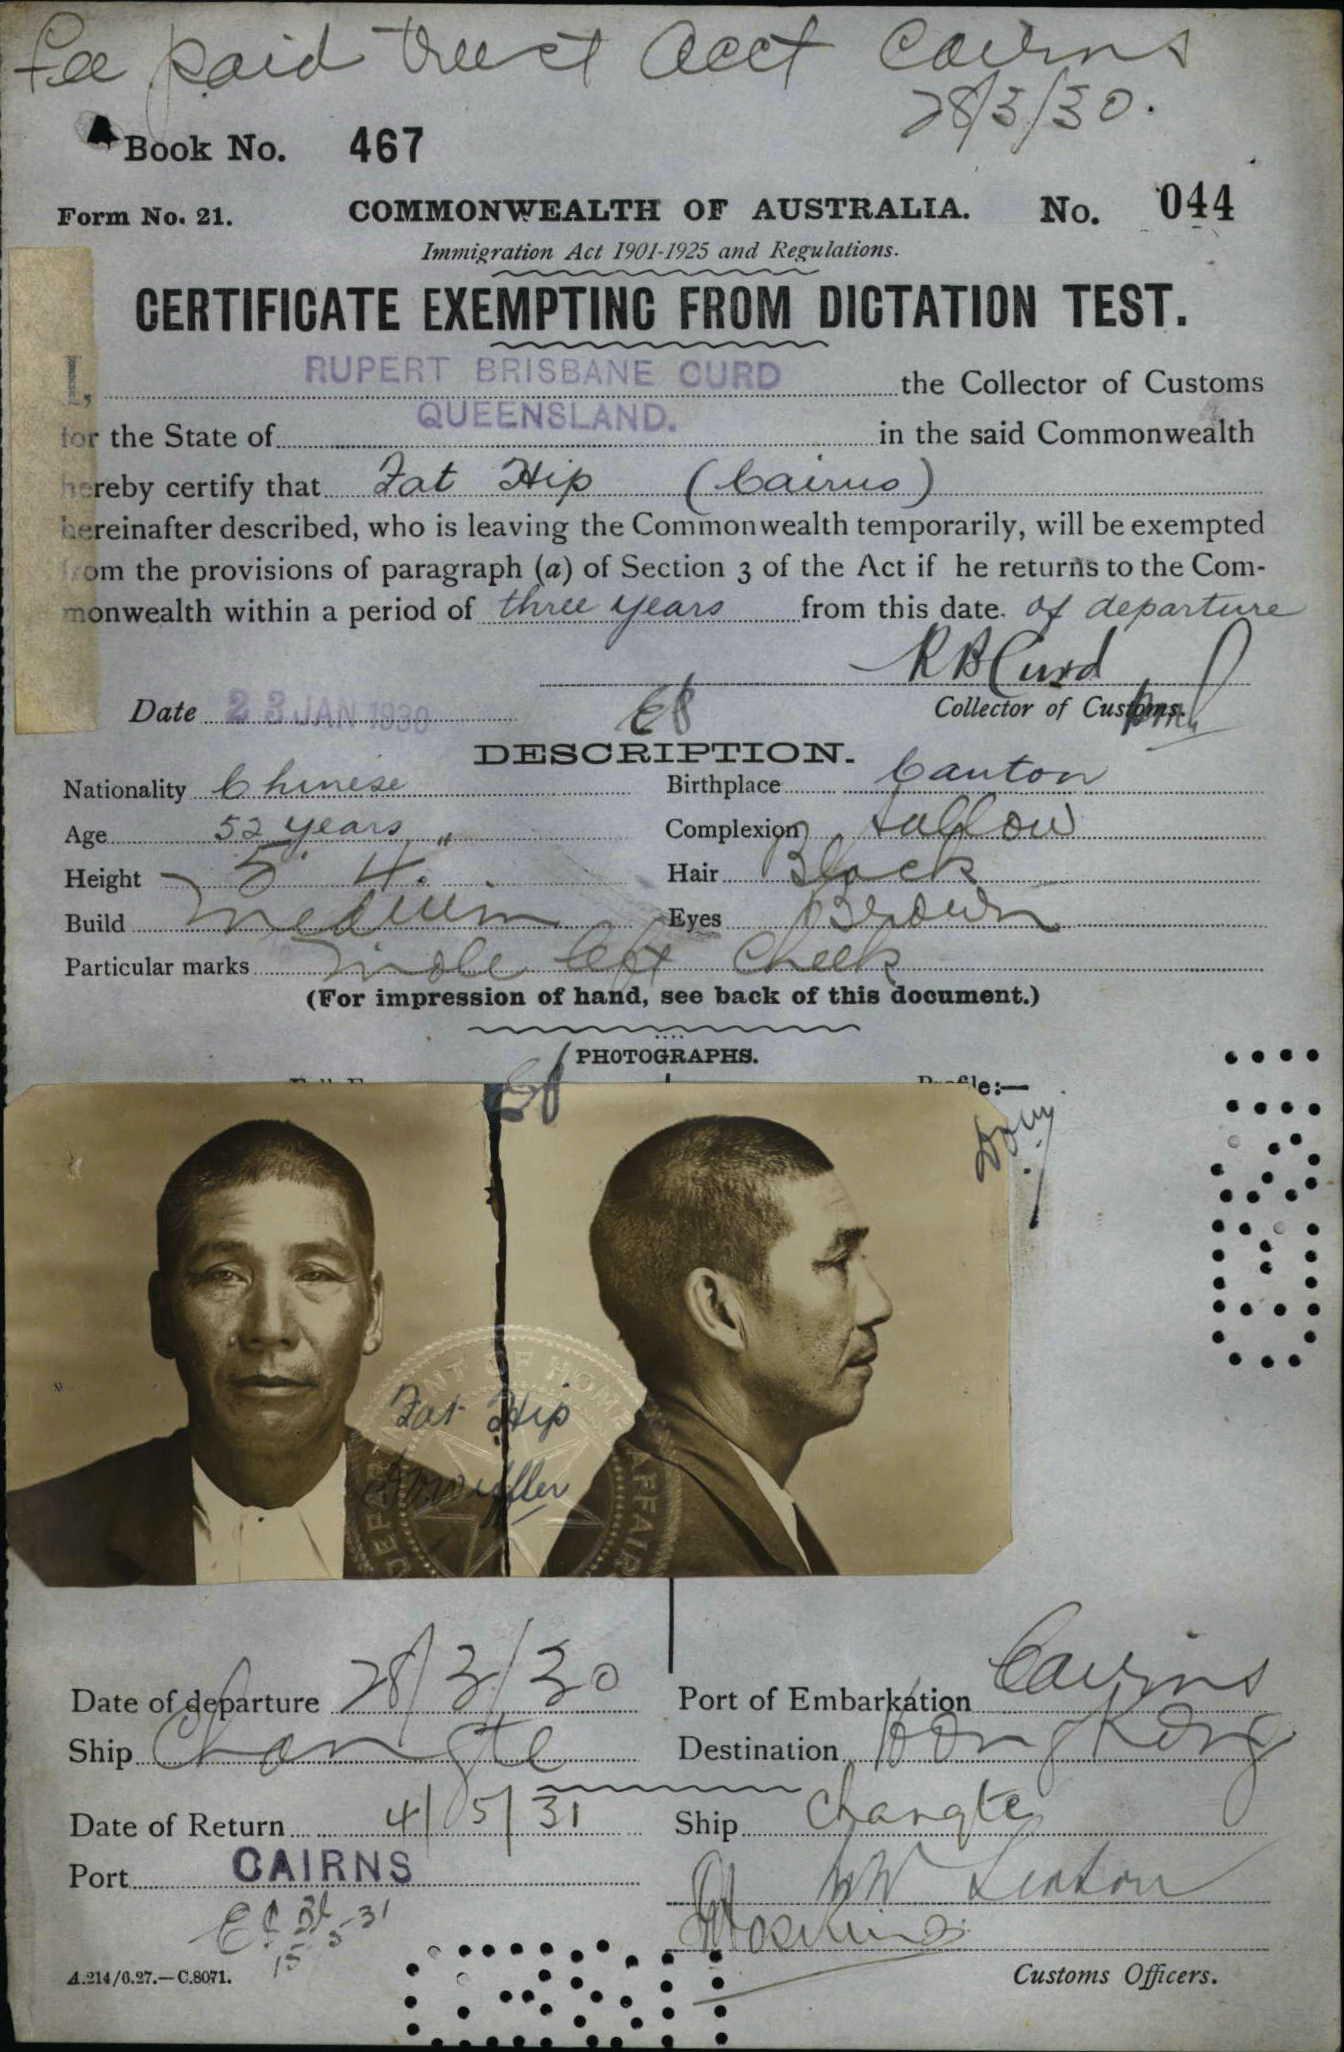 Fee paid trust acct Cairns
28/3/30.
A Book No. 467
Form No. 21. COMMONWEALTH OF AUSTRALIA. No. 044
Immigration Act 1901-1925 and Regulations.
CERTIFICATE EXEMPTING FROM DICTATION TEST.
I, RUPERT BRISBANE CURD the Collector of Customs
for the State of QUEENSLAND. in the said Commonwealth
hereby certify that Fat Hip (Cairns)
hereinafter described, who is leaving the Commonwealth temporarily, will be exempted
from the provisions of paragraph (a) of Section 3 of the Act if he returns to the Com-
monwealth within a period of three years from this date. of departure
R B Curd
Date 23 JAN 1930 Collector of Customs.
DESCRIPTION.
Nationality Chinese Birthplace Canton
Age 52 years Complexion Sallow
Height 5' 4" Hair Black
Build Medium Eyes Brown
Particular marks Mole left cheek
(For impression of hand, see back of this document.)
PHOTOGRAPHS.
Profile:—
DEPARTMENT OF HOME AFFAIRS
Fat Hip
Date of departure 28/3/30 Port of Embarkation Cairns
Ship Changte Destination Hong Kong
Date of Return 4/5/31 Ship Changte
Port CAIRNS
15-5-31
A.214/6.27.—C.8071. Customs Officers.